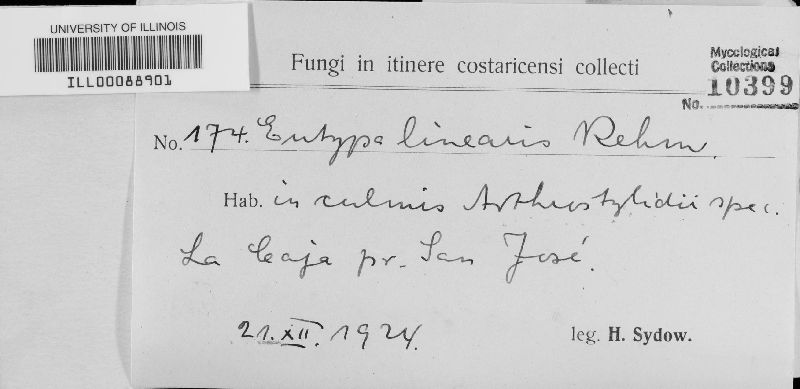 UNIVERSITY OF ILLINOIS
ILL00088901
Fungi in itinere costaricensi collecti
Mycological
Collections
10399
No.
No. 174. Eutypa linearis Rehm.
Hab. in culmis Arthrostylidii spec.
La Caja pr. San José.
21. XII. 1924.
leg. H. Sydow.